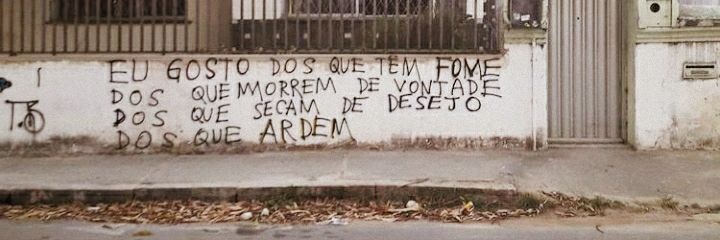 EU GOSTO DOS QUE TÊM FOME
DOS QUE MORREM DE VONTADE
DOS QUE SECAM DE DESEJO
DOS QUE ARDEM